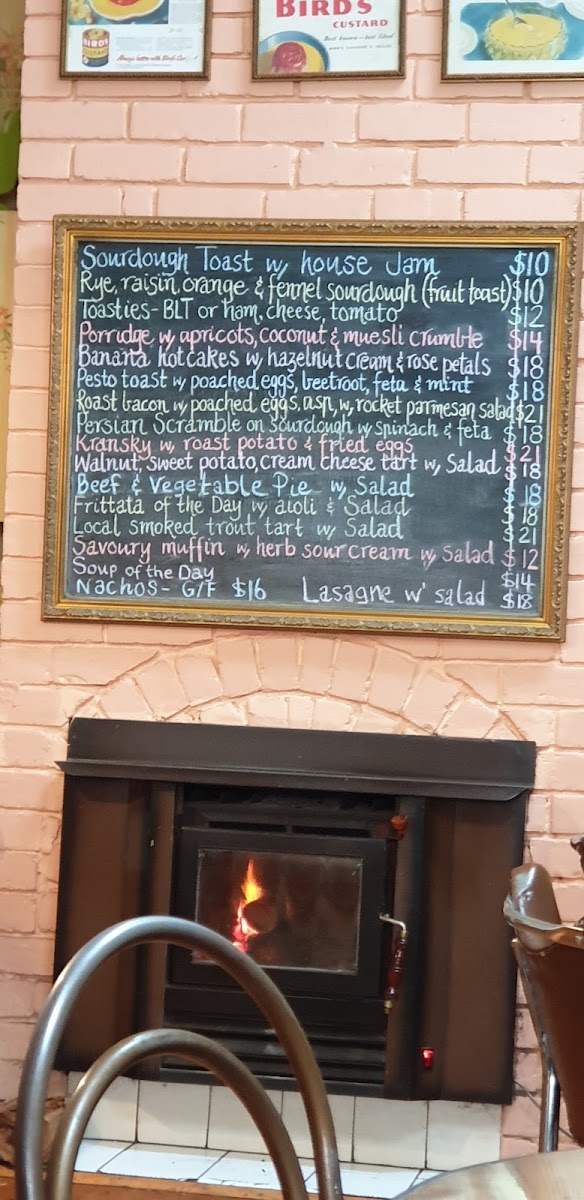 BIRD'S
Always better with Bird's
BIRD'S
CUSTARD
Sourdough Toast w, house Jam $10
Rye, raisin, orange & fennel sourdough (fruit toast) $10
Toasties- BLT or ham, cheese, tomato $12
Porridge w, apricots, coconut & muesli crumble $14
Banana hotcakes w, hazelnut cream & rose petals $18
Pesto toast w, poached eggs, beetroot, feta & mint $18
Roast bacon w, poached eggs, asp, w, rocket parmesan salad $21
Persian Scramble on sourdough w, spinach & feta $18
Kransky w, roast potato & fried eggs $21
Walnut, sweet potato, cream cheese tart w, Salad $18
Beef & Vegetable Pie w, Salad $18
Frittata of the Day w, aioli & Salad $18
Local smoked trout tart w, Salad $21
Savoury muffin w, herb sour cream w, Salad $12
Soup of the Day $14
Nachos- G/F $16 Lasagne w' salad $18